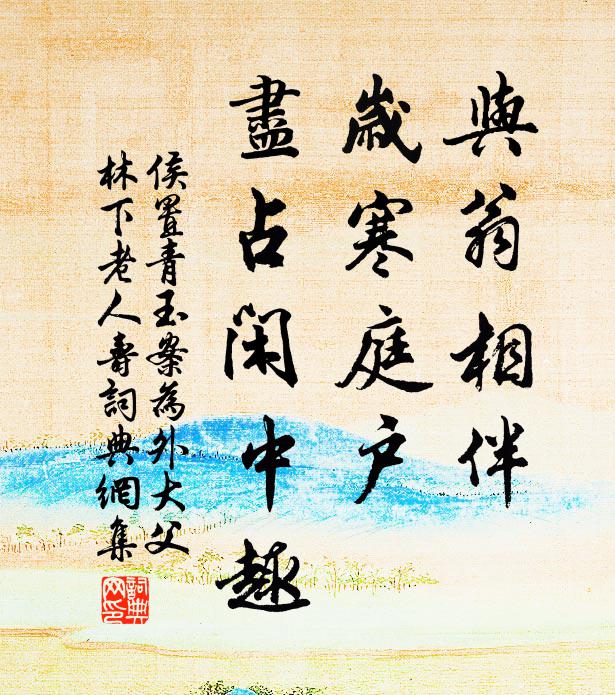 與翁相伴
歲寒庭戶
盡占閑中趣
侯置青玉案為外大父
林下老人壽詞典網集
詞典